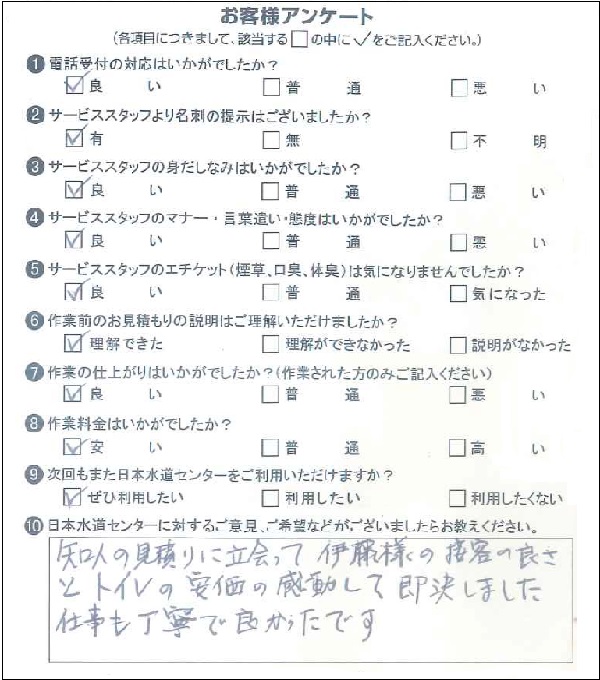 お客様アンケート
(各項目につきまして、該当する□の中に✓をご記入ください。)
❶電話受付の対応はいかがでしたか?
☑良い □普通 □悪い
❷サービススタッフより名刺の提示はございましたか?
☑有 □無 □不明
❸サービススタッフの身だしなみはいかがでしたか?
☑良い □普通 □悪い
❹サービススタッフのマナー・言葉遣い・態度はいかがでしたか?
☑良い □普通 □悪い
❺サービススタッフのエチケット(煙草、口臭、体臭)は気になりませんでしたか?
☑良い □普通 □気になった
❻作業前のお見積もりの説明はご理解いただけましたか?
☑理解できた □理解ができなかった □説明がなかった
❼作業の仕上がりはいかがでしたか?(作業された方のみご記入ください)
☑良い □普通 □悪い
❽作業料金はいかがでしたか?
☑安い □普通 □高い
❾次回もまた日本水道センターをご利用いただけますか?
☑ぜひ利用したい □利用したい □利用したくない
❿日本水道センターに対するご意見、ご希望などがございましたらお教えください。
知人の見積りに立会って 伊藤様の接客の良さ
と トイレの 安価の感動して 即決しました
仕事も丁寧で良かったです